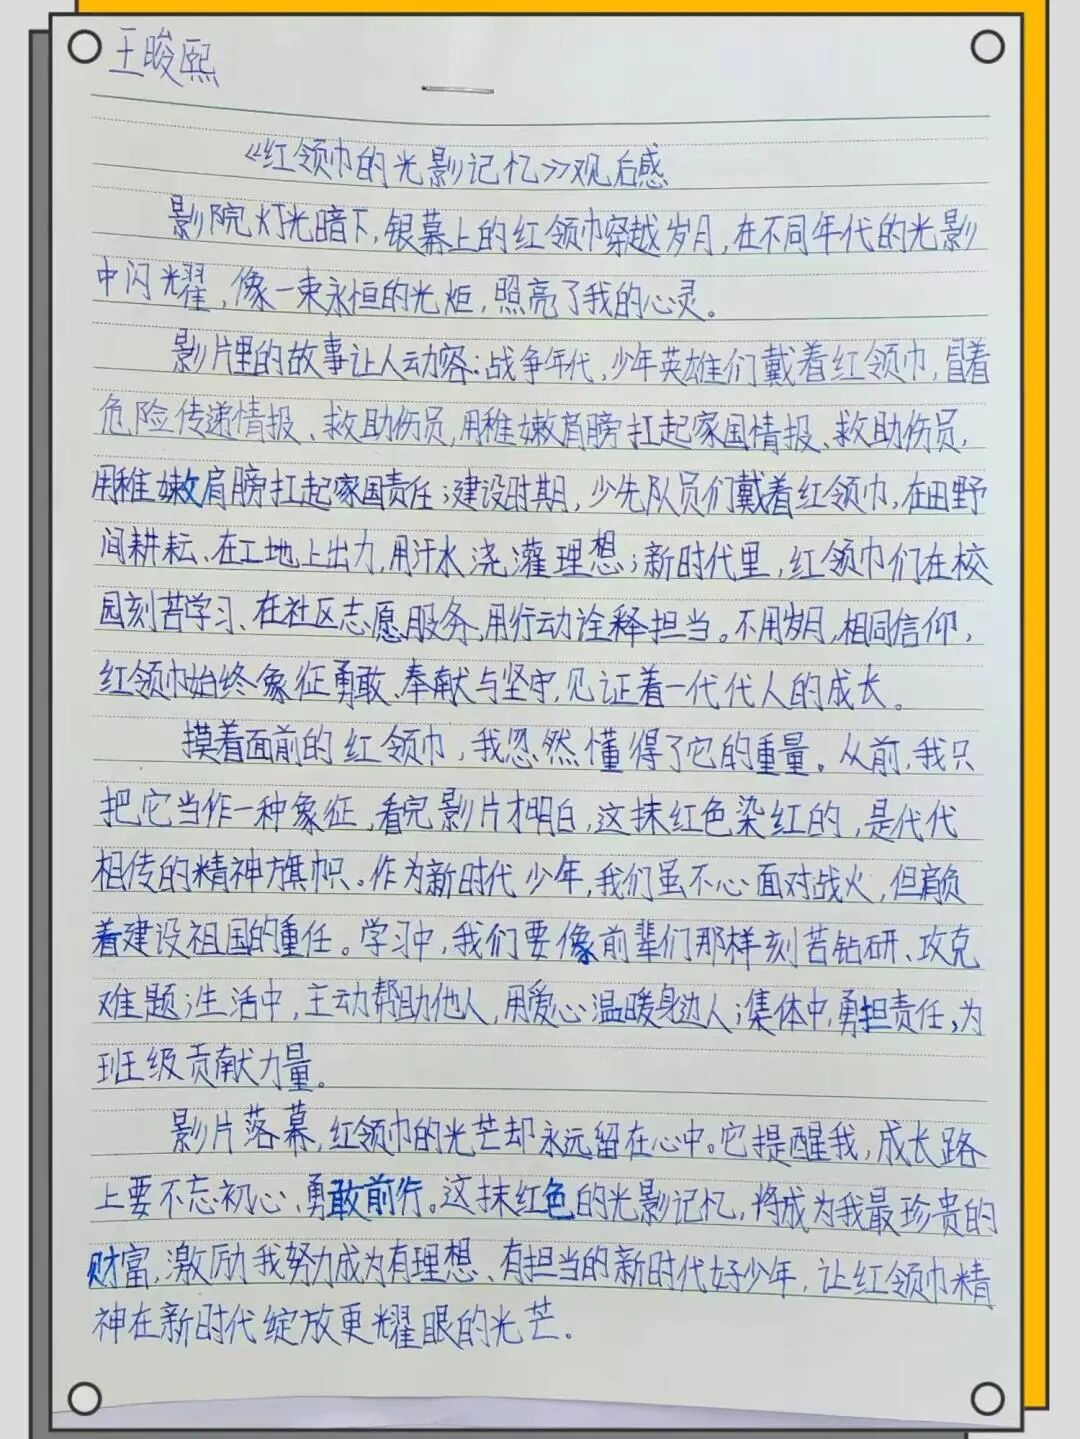 王晙熙
《红领巾的光影记忆》观后感
影院灯光暗下,银幕上的红领巾穿越岁月,在不同年代的光影
中闪耀,像一束永恒的光炬,照亮了我的心灵。
影片里的故事让人动容:战争年代,少年英雄们戴着红领巾,冒着
危险传递情报、救助伤员,用稚嫩肩膀扛起家国情报、救助伤员,
用稚嫩肩膀扛起家国责任;建设时期,少先队员们戴着红领巾,在田野
间耕耘、在工地上出力,用汗水浇灌理想;新时代里,红领巾们在校
园刻苦学习、在社区志愿服务,用行动诠释担当。不用岁月,相同信仰,
红领巾始终象征勇敢、奉献与坚守,见证着一代代人的成长。
摸着面前的红领巾,我忽然懂得了它的重量。从前,我只
把它当作一种象征,看完影片才明白,这抹红色染红的,是代代
相传的精神旗帜。作为新时代少年,我们虽不心面对战火,但肩负
着建设祖国的重任。学习中,我们要像前辈们那样刻苦钻研、攻克
难题;生活中,主动帮助他人,用爱心温暖身边人;集体中,勇担责任,为
班级贡献力量。
影片落幕,红领巾的光芒却永远留在心中。它提醒我,成长路
上要不忘初心、勇敢前行。这抹红色的光影记忆,将成为我最珍贵的
财富,激励我努力成为有理想、有担当的新时代好少年,让红领巾精
神在新时代绽放更耀眼的光芒。